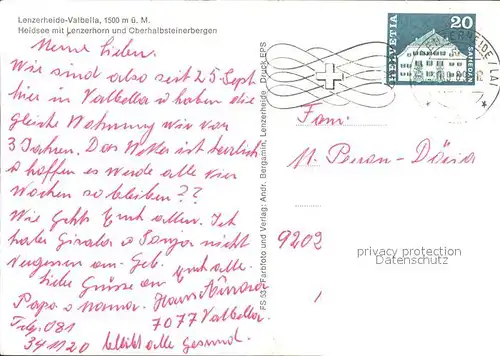 Lenzerheide-Valbella, 1500 m ü. M.
Heidsee mit Lenzerhorn und Oberhalbsteinerbergen
Meine Lieben.
Wir sind also seit 25 Sept
hier in Valbella u haben die
gleiche Wohnung wie vor
3 Jahren. Das Wetter ist herrlich
u hoffen es werde alle vier
Wochen so bleiben??
Wie gehts Euch allen. Ich
habe Gisela u Sonja nicht
vergessen am Geb.
Liebe Grüsse an Euch alle.
Papa u Mama. Hans
7077 Valbella.
Telf. 081
341120 bleibt alle gesund.
FS 534 Farbfoto und Verlag: Andr. Bergamin, Lenzerheide Druck EPS
HELVETIA
20
SAMEDAN
Fam.
9202
privacy protection
Datenschutz